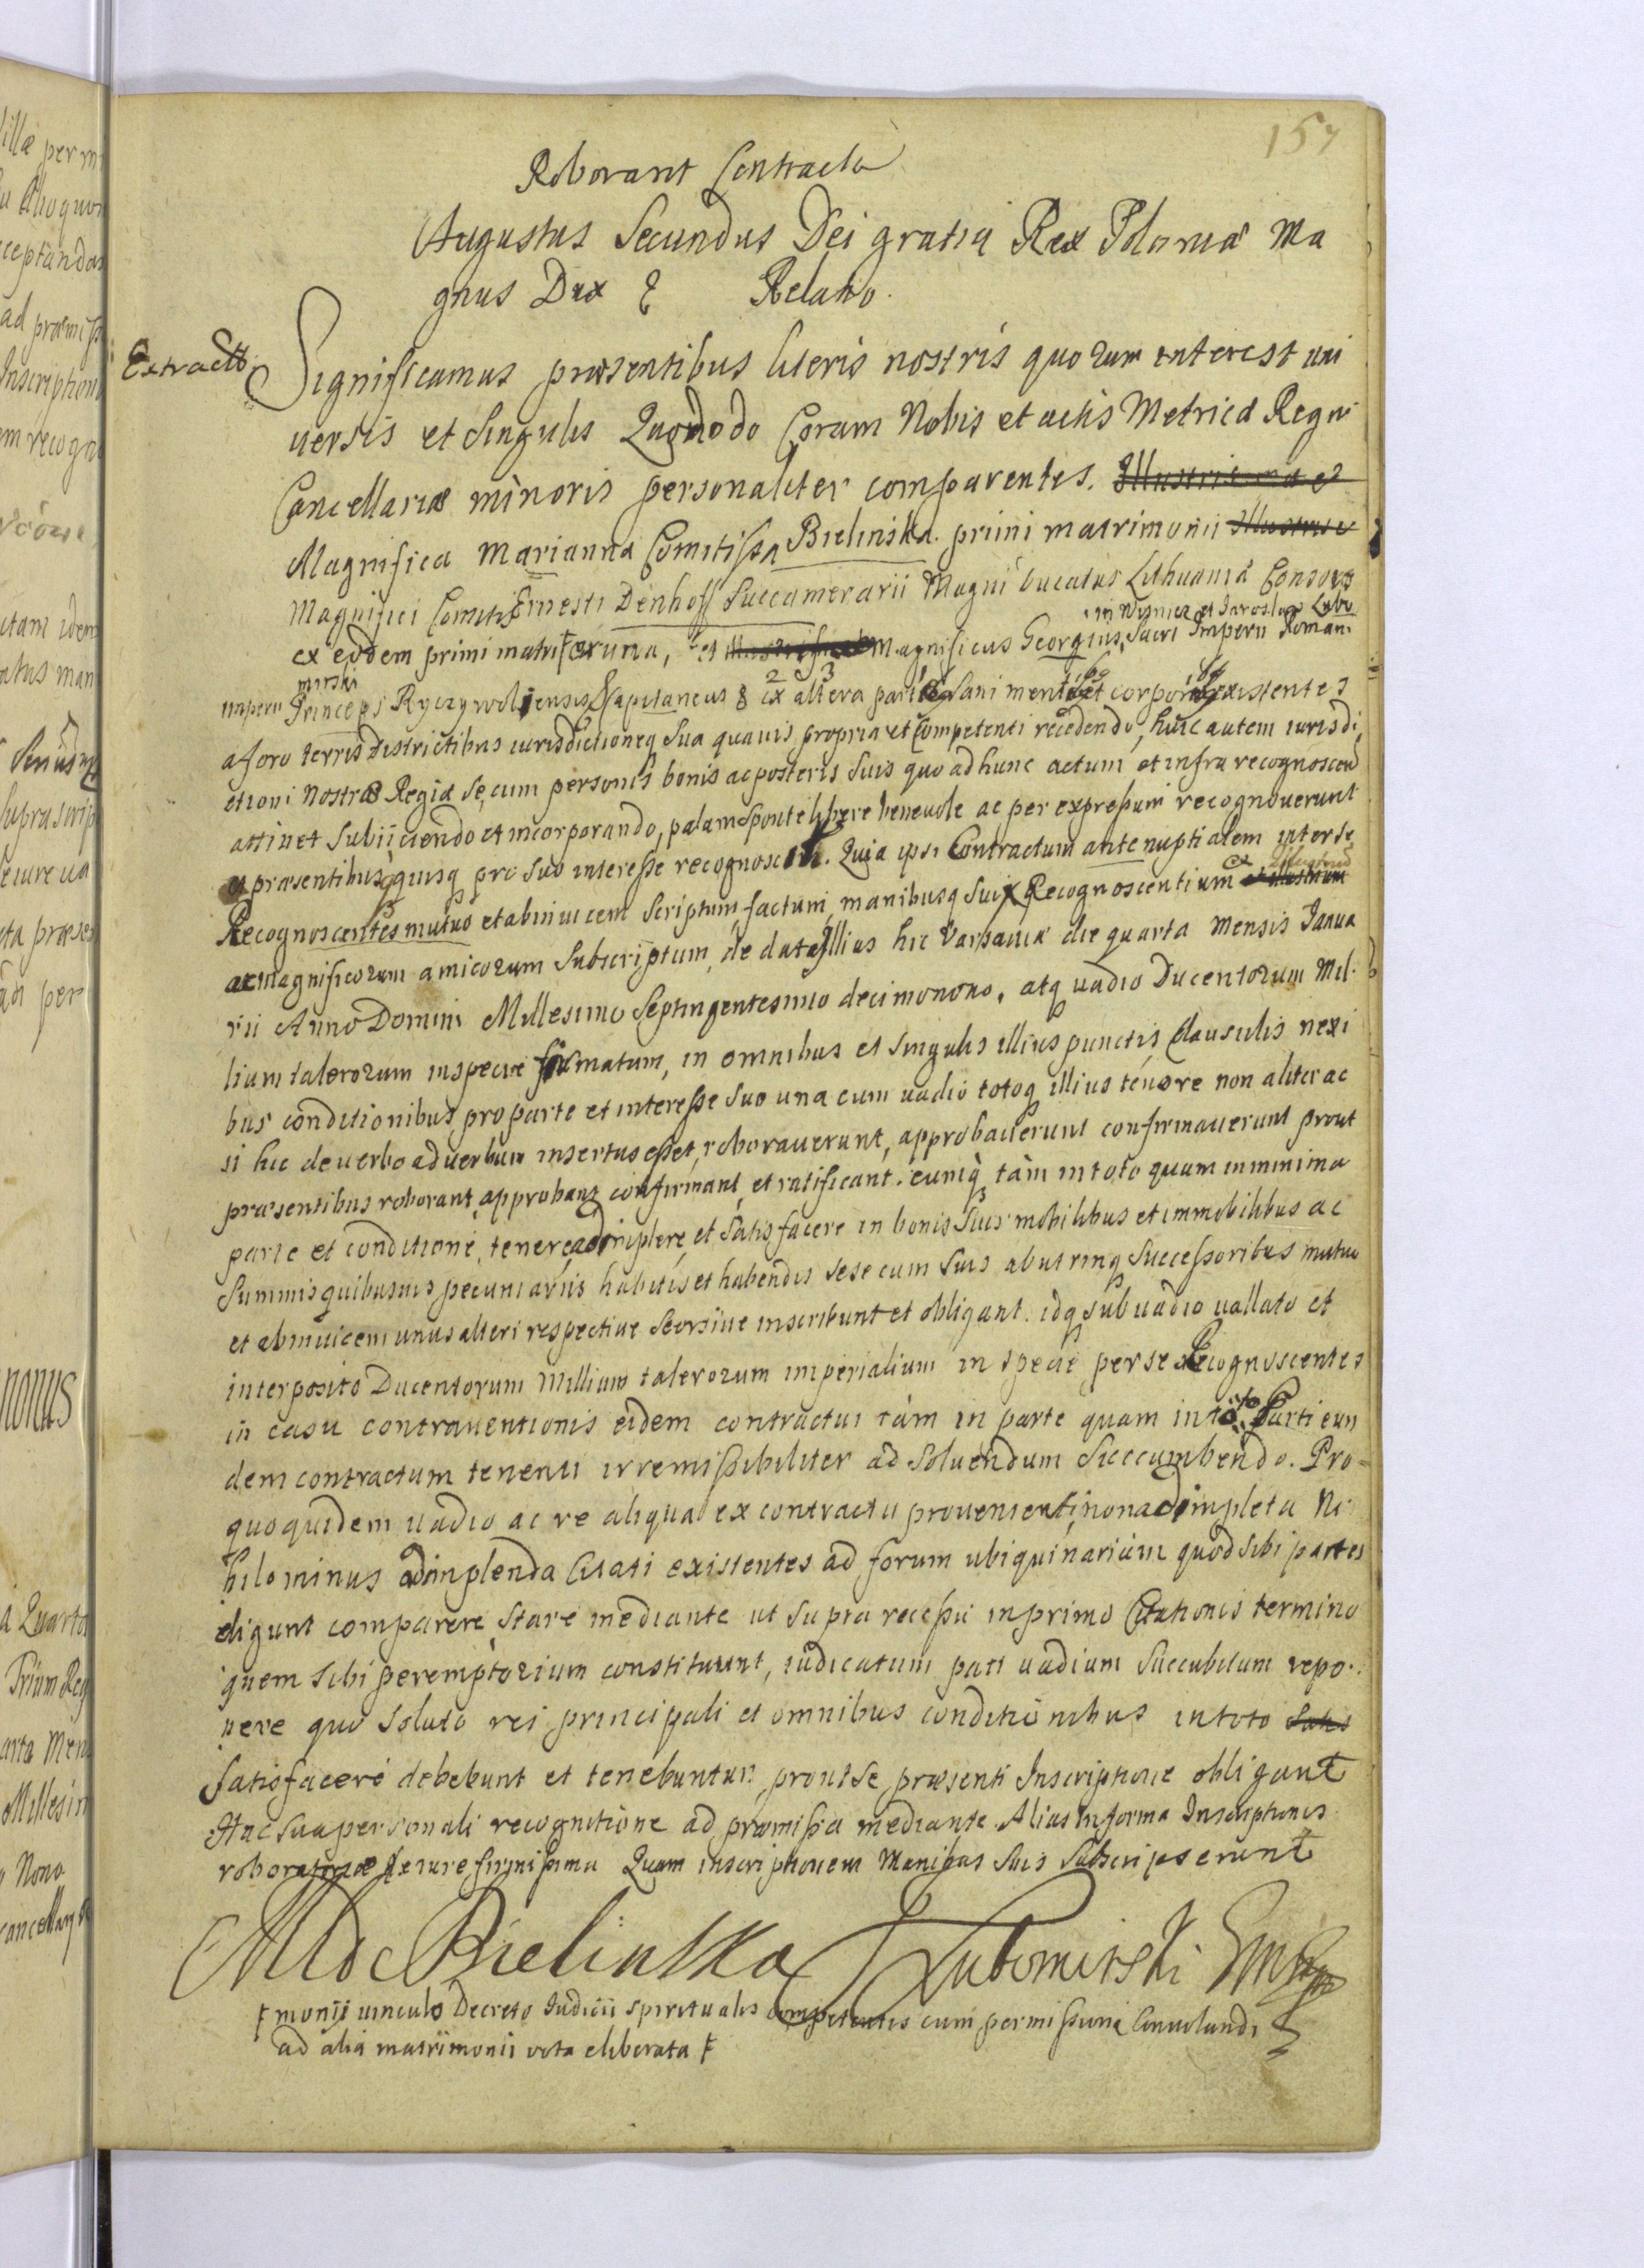 157
Roborant Contracta
Augustus Secundus Dei gratia Rex Poloniæ Ma
gnus Dux & Relatio.
Extractt
Significamus præsentibus literis nostris quorum interest uni
uersis et singulis Quomodo Coram Nobis et actis Metrica Regni
Cancellariæ minoris personaliter comparentes. Illustrissima et
Magnifica Marianna Comitissa Bielinska primi matrimonii Illustris
Magnifici Comitis Ernesti Denhoff Succamerarii Magni Ducatus Lithuaniæ Consors
in Wisnicz et Jaroslaw Lubo
ex eodem primi matri ŧ una, et Magnificus Georgius, Sacri Imperii Romani
mirski
imperii Princeps Ryczywoliensis Capitaneus & ex altera parte sani mente et corpore existentes
a foro terris districtibus iurisdictioneq sua quauis propria et competenti recedendo, huic autem iurisdi
ctioni Nostræ Regiæ se cum personis bonis ac posteris suis quo ad hunc actum et infra recognoscend
attinet subiiciendo et incorporando, palam sponte libere beneuole ac per expressum recognouerunt
et præsentibus quisq pro suo interesse recognoscunt. Quia ipsi Contractum antenuptialem inter se
Recognoscentes mutuo et ab inuicem scriptum factum, manibusq suis Recognoscentium et Illustrium
ac Magnificorum amicorum subscriptum, de data illius hic Varsauiæ die quarta mensis Janua
rii Anno Domini Millesimo Septingentesimo decimo nono, atq uadio Ducentorum Mil
lium talerorum in specie firmatum, in omnibus et singulis illius punctis clausulis nexi
bus conditionibus pro parte et interesse suo una cum uadio totoq illius tenore non aliter ac
si hic de uerbo ad uerbum insertus esset, roborauerunt, approbauerunt confirmauerunt prout
præsentibus roborant, approbant confirmant, et ratificant. eumq tàm in toto quam in minima
parte et conditione, tenere, adimplere, et satisfacere in bonis suis mobilibus et immobilibus ac
summis quibusuis pecuniariis habitis et habendis sese cum suis ab utrinq successoribus mutuo
et ab inuicem unus alteri respectiue seorsiue inscribunt et obligant. idq sub uadio uallato et
interposito Ducentorum Millium talerorum imperialium in specie per se Recognoscentes
in casu contrauentionis eidem contractui tàm in parte quam in toto Parti eun
dem contractum tenenti irremissibiliter ad soluendum succumbendo. Pro
quo quidem uadio ac re aliqua ex contractu proueniente, non adimpleta Ni
hilominus adimplenda Citati existentes ad forum ubiquinarium quod sibi partes
eligunt comparere, stare mediante ut supra recessu in primo Citationis termino
quem sibi peremptorium constituunt, iudicatum pati uadium succubitum repo
nere quo soluto rei principali et omnibus conditionibus in toto satis
satisfacere debebunt et tenebuntur. prout se præsenti Inscriptione obligant
Hac sua personali recognitione ad præmissa mediante. Alias in forma Inscriptionis
roboratoriæ de iure firmissima Quam inscriptionem Manibus suis subscripserunt
M de Bielinska J Lubomirski
ŧ monii uinculo Decreto Iudicii spiritualis competentis cum permissione Conuolandi
ad alia matrimonii vota eliberata ŧ